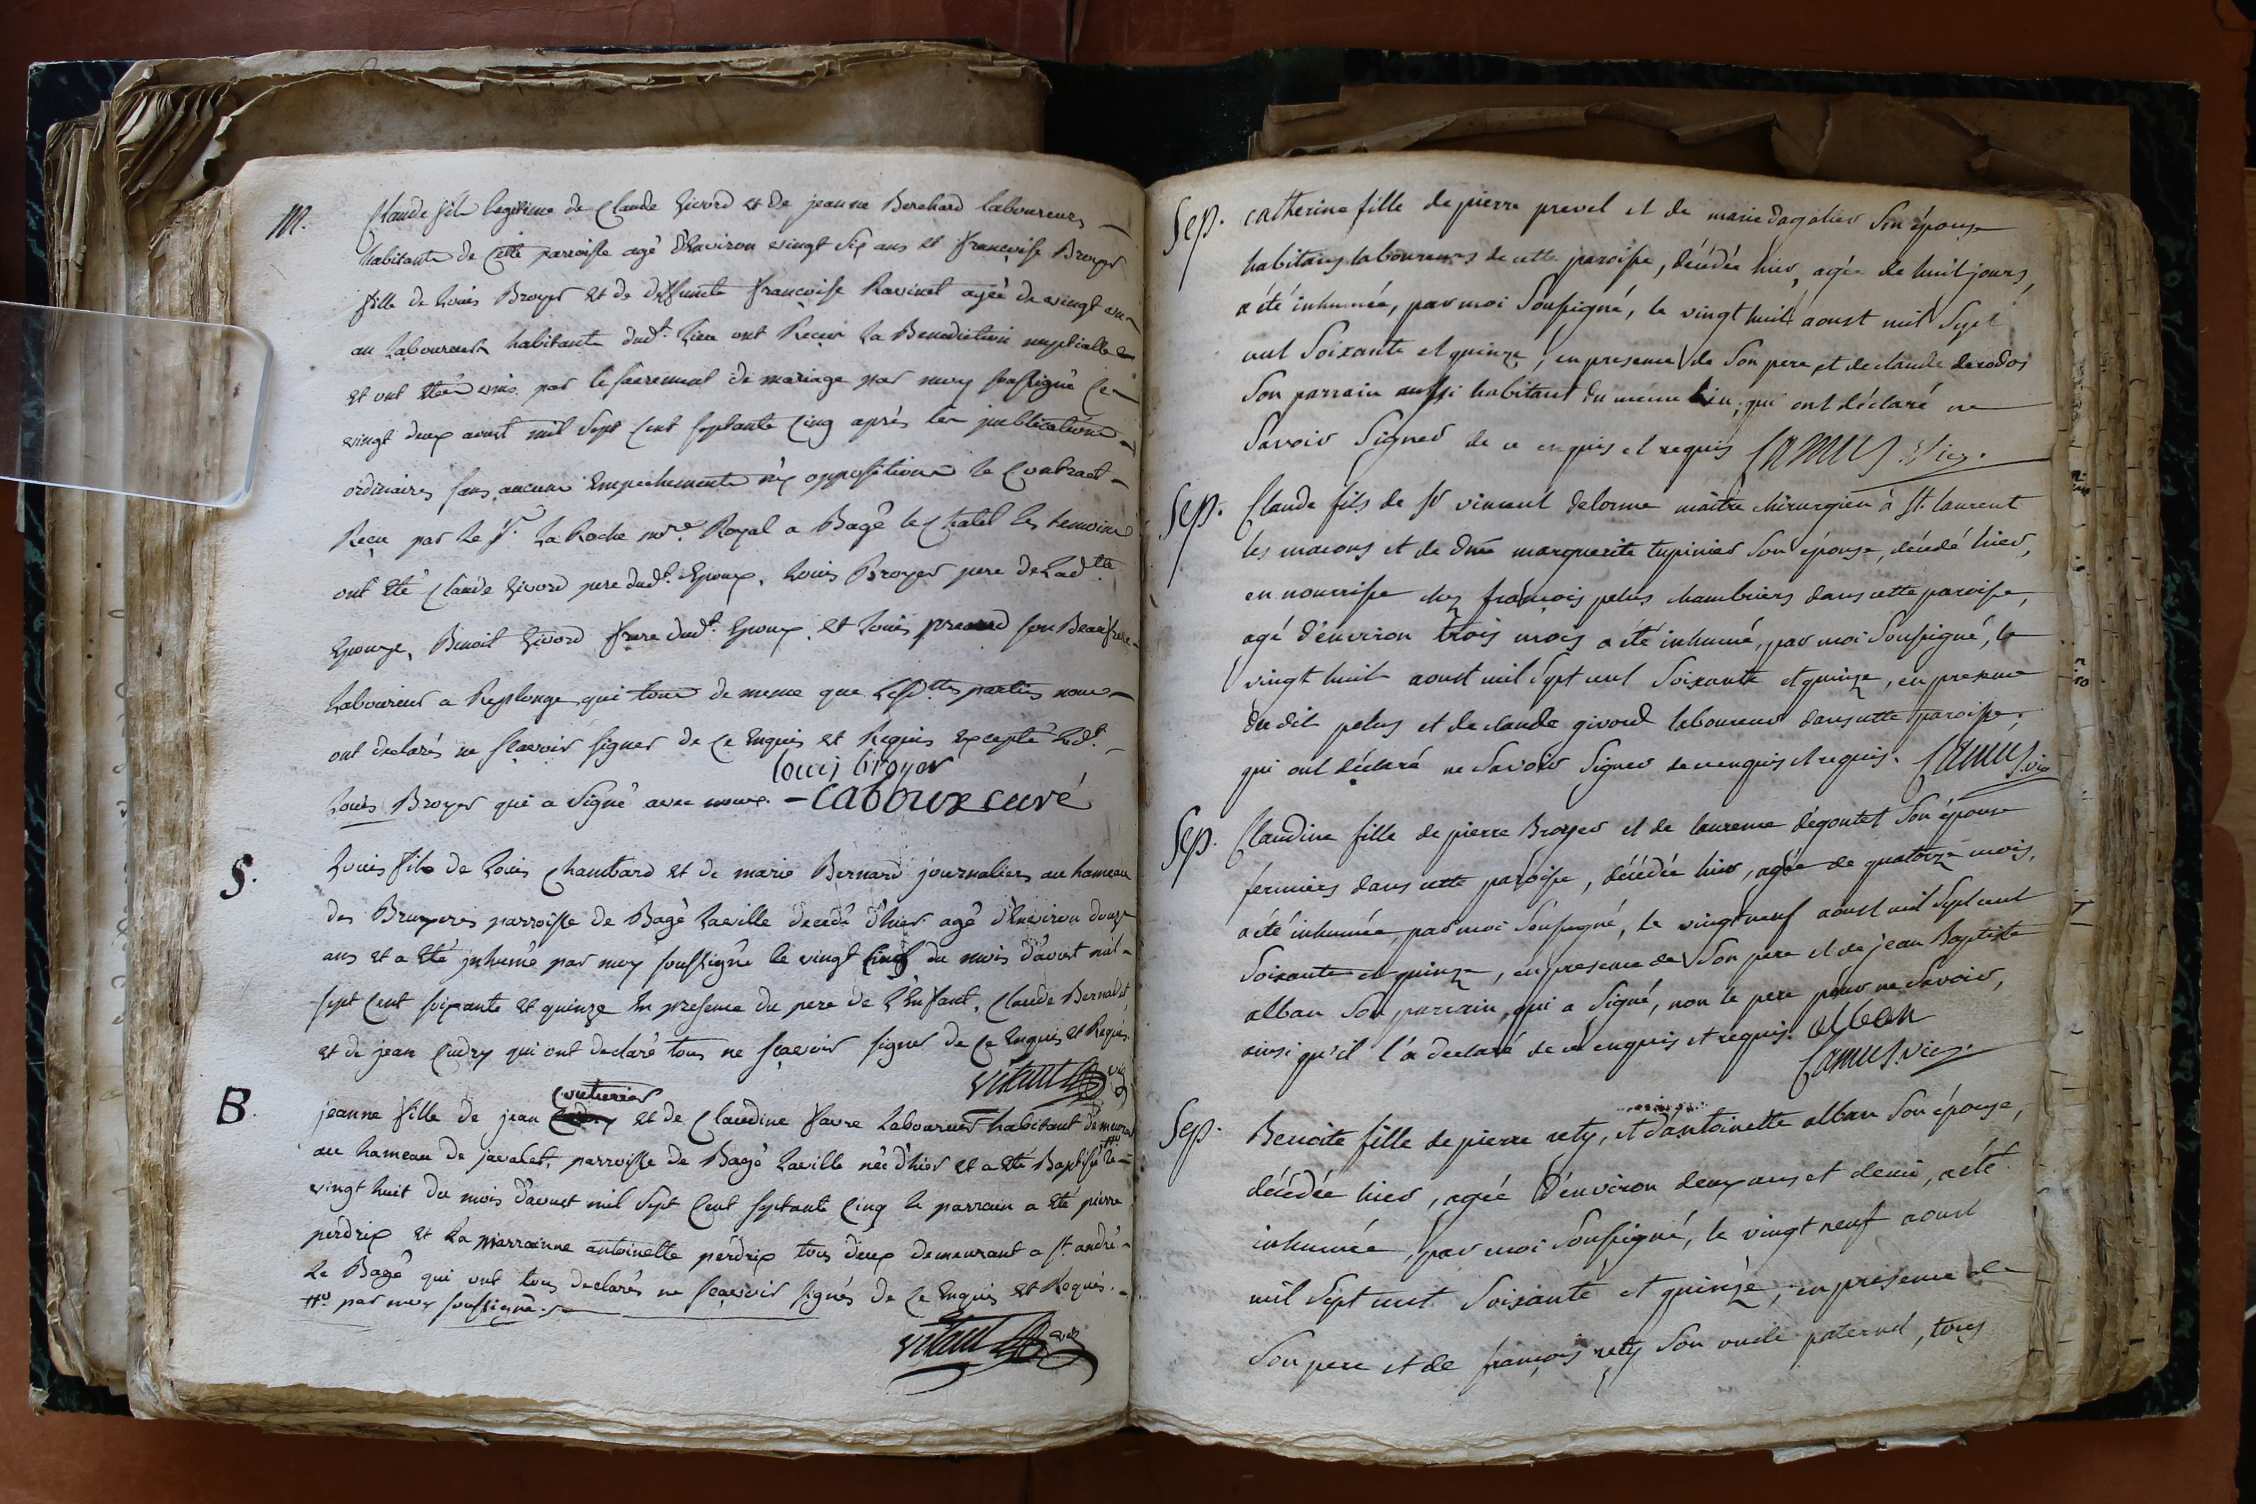 M.
Claude fils legitime de Claude Givord et de jeanne Berchard laboureurs
habitants de Cette parroisse agé d'Environ vingt six ans et françoise Broyer
fille de Louis Broyer et de deffuncte françoise Ravinet agée de vingt un
an Laboureurs habitants dud.t Lieu ont Reçu La Benediction nuptialle
et ont été unis par le sacrement de mariage par moy soussigné Ce
vingt deux aoust mil sept Cent septante Cinq après les publications
ordinaires sans aucuns Empechements ny oppositions le Contract
Reçu par Le Sr. La Roche nore. Royal a Bagé le Chatel les temoins
ont été Claude Givord pere dud.t Epoux, Louis Broyer pere de Lad.tte
Epouze, Benoit Givord frere dud.t Epoux, et Louis son Beau frere
Laboureur a Replonge qui tous de meme que Lesd.ttes parties nous
ont declarés ne sçavoir signer de Ce Enquis et Requis Excepté Led.t
louis broyer
Louis Broyer qui a signé avec nous. — Caboux curé
S.
Louis fils de Louis Chambard et de marie Bernard journaliers au hameau
des Bruyeres parroisse de Bagé Laville decedé d'hier agé d'Environ douze
ans et a été inhumé par moy soussigné le vingt Cinq du mois d'aoust mil
sept Cent soixante et quinze En presence du pere de L'Enfant, Claude Bernardet
et de jean Cudry qui ont declaré tous ne sçavoir signer de Ce Enquis et Requis.
vitaut vic
B.
Couturier
jeanne fille de jean et de Claudine favre Laboureurs habitant demeurant
au hameau de javalet, parroisse de Bagé Laville née d'hier et a été Baptisé le
vingt huit du mois d'aoust mil sept Cent septante Cinq le parrain a été pierre
perdrix et La marrainne antoinette perdrix tous deux demeurant a St andré
Le Bagé qui ont tous declarés ne sçavoir signés de Ce Enquis et Requis.
par moy soussigné.
vitaut vic
Sep. catherine fille de pierre prevel et de marie dagalier son épouse
habitans laboureurs de cette paroisse, décédée hier, agée de huit jours,
a été inhumée, par moi soussigné, le vingt huit aoust mil sept
cent soixante et quinze, en presence de son pere et de claude
son parrain aussi habitant du meme lieu, qui ont déclaré ne
savoir signer de ce enquis et requis Camus Vic.
Sep. Claude fils de Sr vincent delorme maître chirurgien à St. laurent
les macons et de dme marguerite tupinier son épouse, décédé hier,
en nourrisse chez françois pelus chambriers dans cette paroisse,
agé d'environ trois mois a été inhumé, par moi soussigné, le
vingt huit aoust mil sept cent soixante et quinze, en presence
du dit pelus et de claude givord laboureur dans cette paroisse,
qui ont déclaré ne savoir signer de ce enquis et requis. Camus vic
Sep. Claudine fille de pierre Broyer et de laurence degoutet son épouse
fermiers dans cette paroisse, décédée hier, agée de quatorze mois,
a été inhumée, par moi soussigné, le vingt neuf aoust mil sept cent
soixante et quinze, en presence de son pere et de jean Baptiste
alban son parrain, qui a signé, non le pere pour ne savoir,
ainsi qu'il l'a declaré de ce enquis et requis. alban
Camus. vic.
Sep. Benoite fille de pierre rety, et d'antoinette alban son épouse,
décédée hier, agée d'environ deux ans et demi, a été
inhumée, par moi soussigné, le vingt neuf aoust
mil sept cent soixante et quinze, en presence de
son pere et de françois rety son oncle paternel, tous